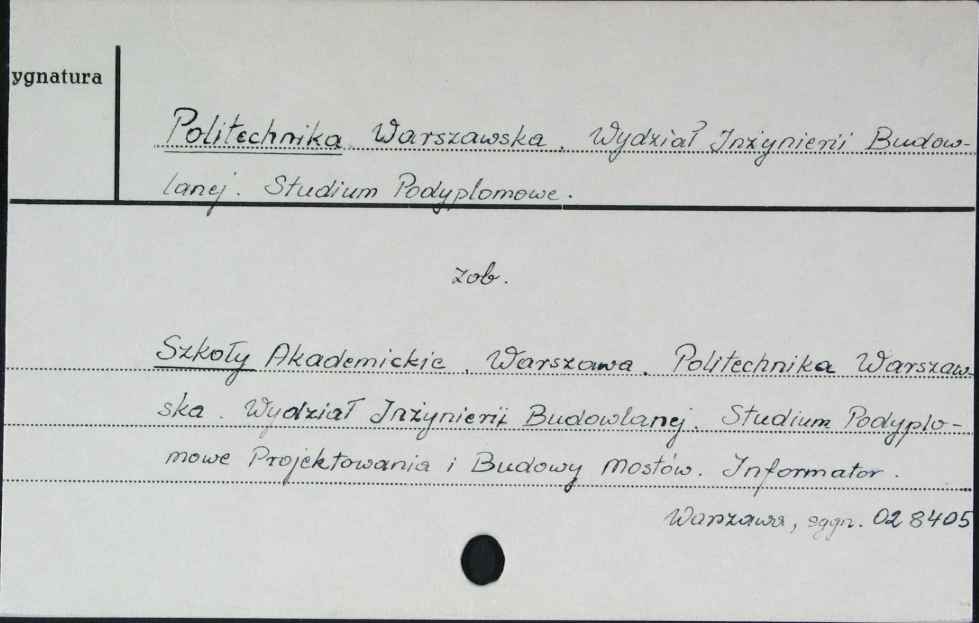 ygnatura
Politechnika Warszawska. Wydział Inżynierii Budow-
lanej. Studium Podyplomowe.
zob.
Szkoły Akademickie. Warszawa. Politechnika Warszaw-
ska. Wydział Inżynierii Budowlanej. Studium Podyplo-
mowe Projektowania i Budowy Mostów. Informator.
Warszawa, sygn. 028405